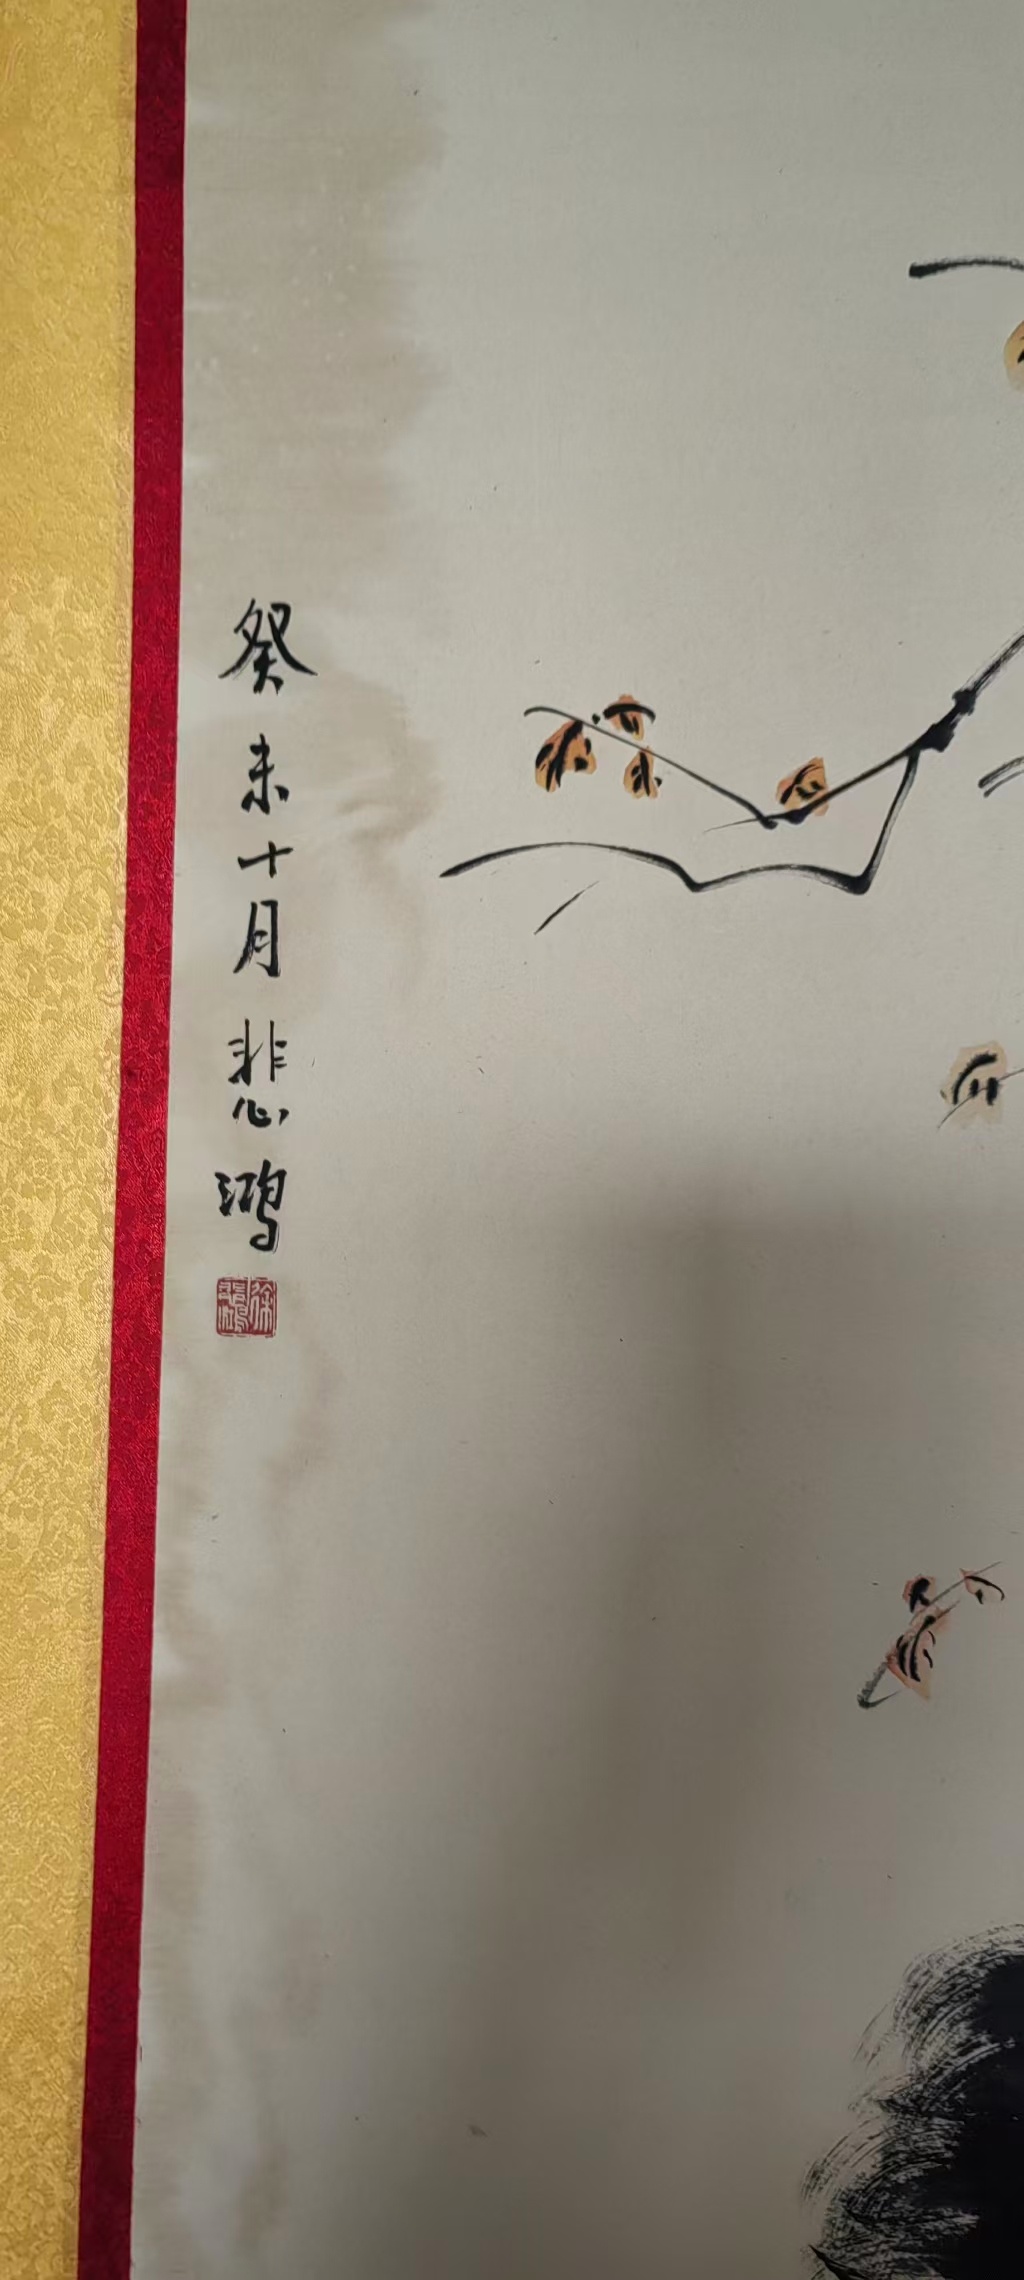 癸未十月悲鸿
徐悲鸿